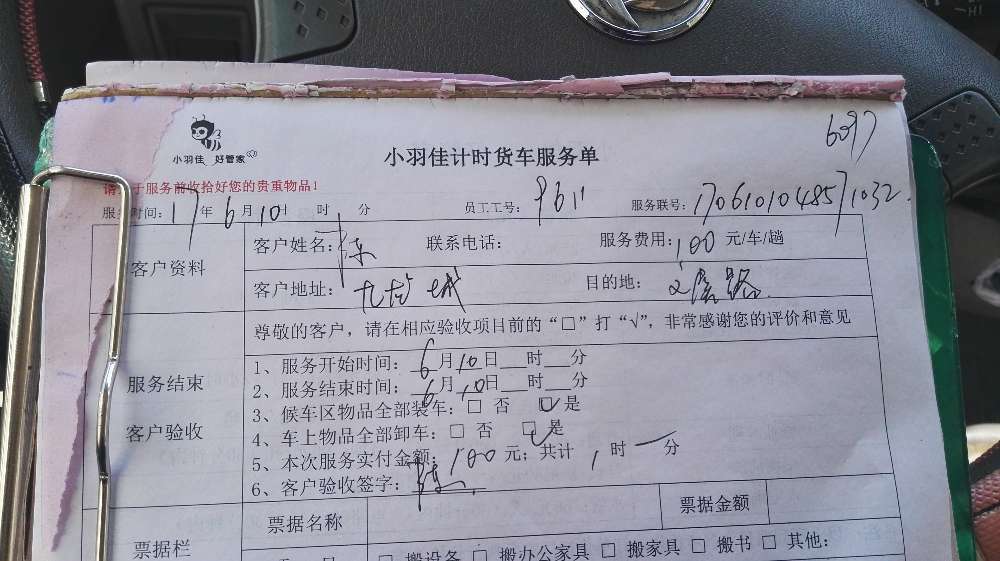 6097
小羽佳 好管家
小羽佳计时货车服务单
请于服务前收拾好您的贵重物品！
服务时间：17年6月10日 时 分 员工工号：9611 服务联号：1706101048571032
客户资料
客户姓名：陈 联系电话： 服务费用：100元/车/趟
客户地址：九龙城 目的地：
尊敬的客户，请在相应验收项目前的“□”打“√”，非常感谢您的评价和意见
服务结束
客户验收
1、服务开始时间：6月10日__时__分
2、服务结束时间：6月10日__时__分
3、候车区物品全部装车：□ 否 ☑是
4、车上物品全部卸车：□ 否 ☑是
5、本次服务实付金额：100元；共计1时一分
6、客户验收签字：陈
票据栏
票据名称 票据金额
□ 搬设备 □ 搬办公家具 □ 搬家具 □ 搬书 □ 其他：